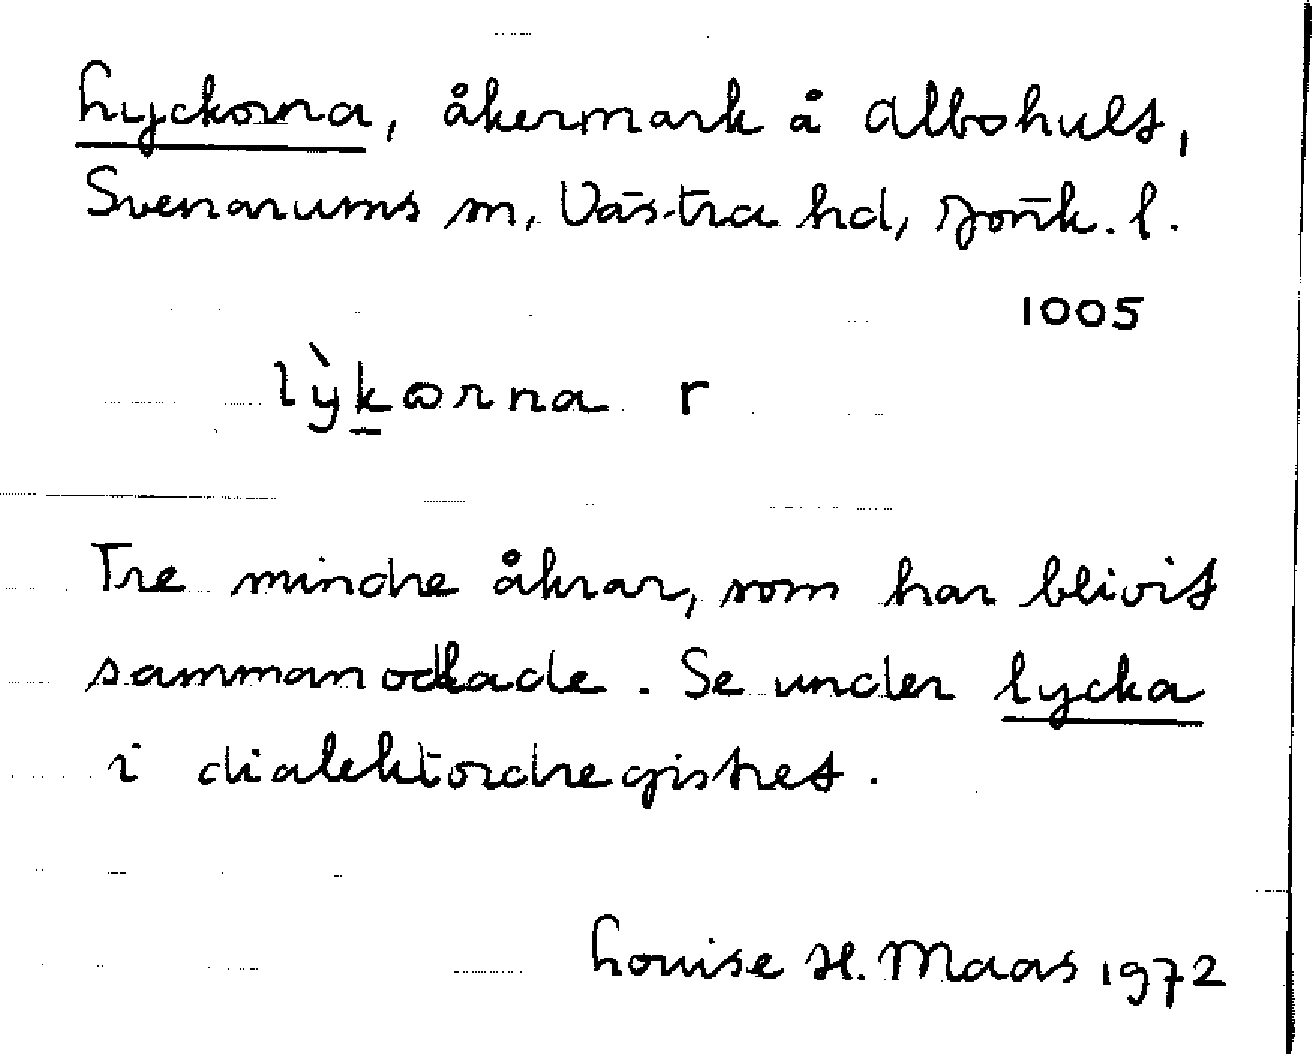 Lyckorna, åkermark å Albohult,
Svenarums sn, Västra hd, Jönk. l.
1005
lỳk̲ωrna r
Tre mindre åkrar, som har blivit
sammanodlade. Se under lycka
i dialektordregistret.
Louise H. Maas 1972